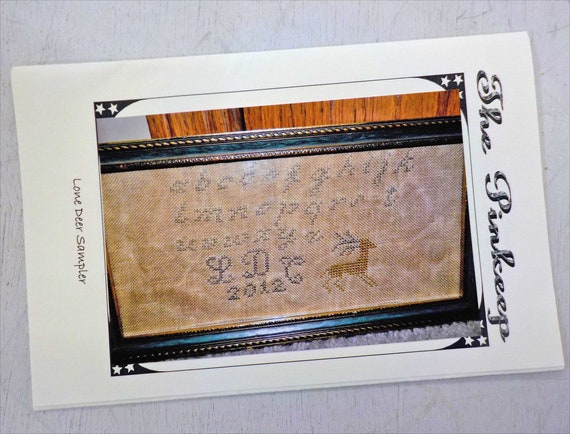 The Pinkeep
a b c d e f g h i j k
l m n o p q r s t
u v w x y z
L D T
2012
Lone Deer Sampler